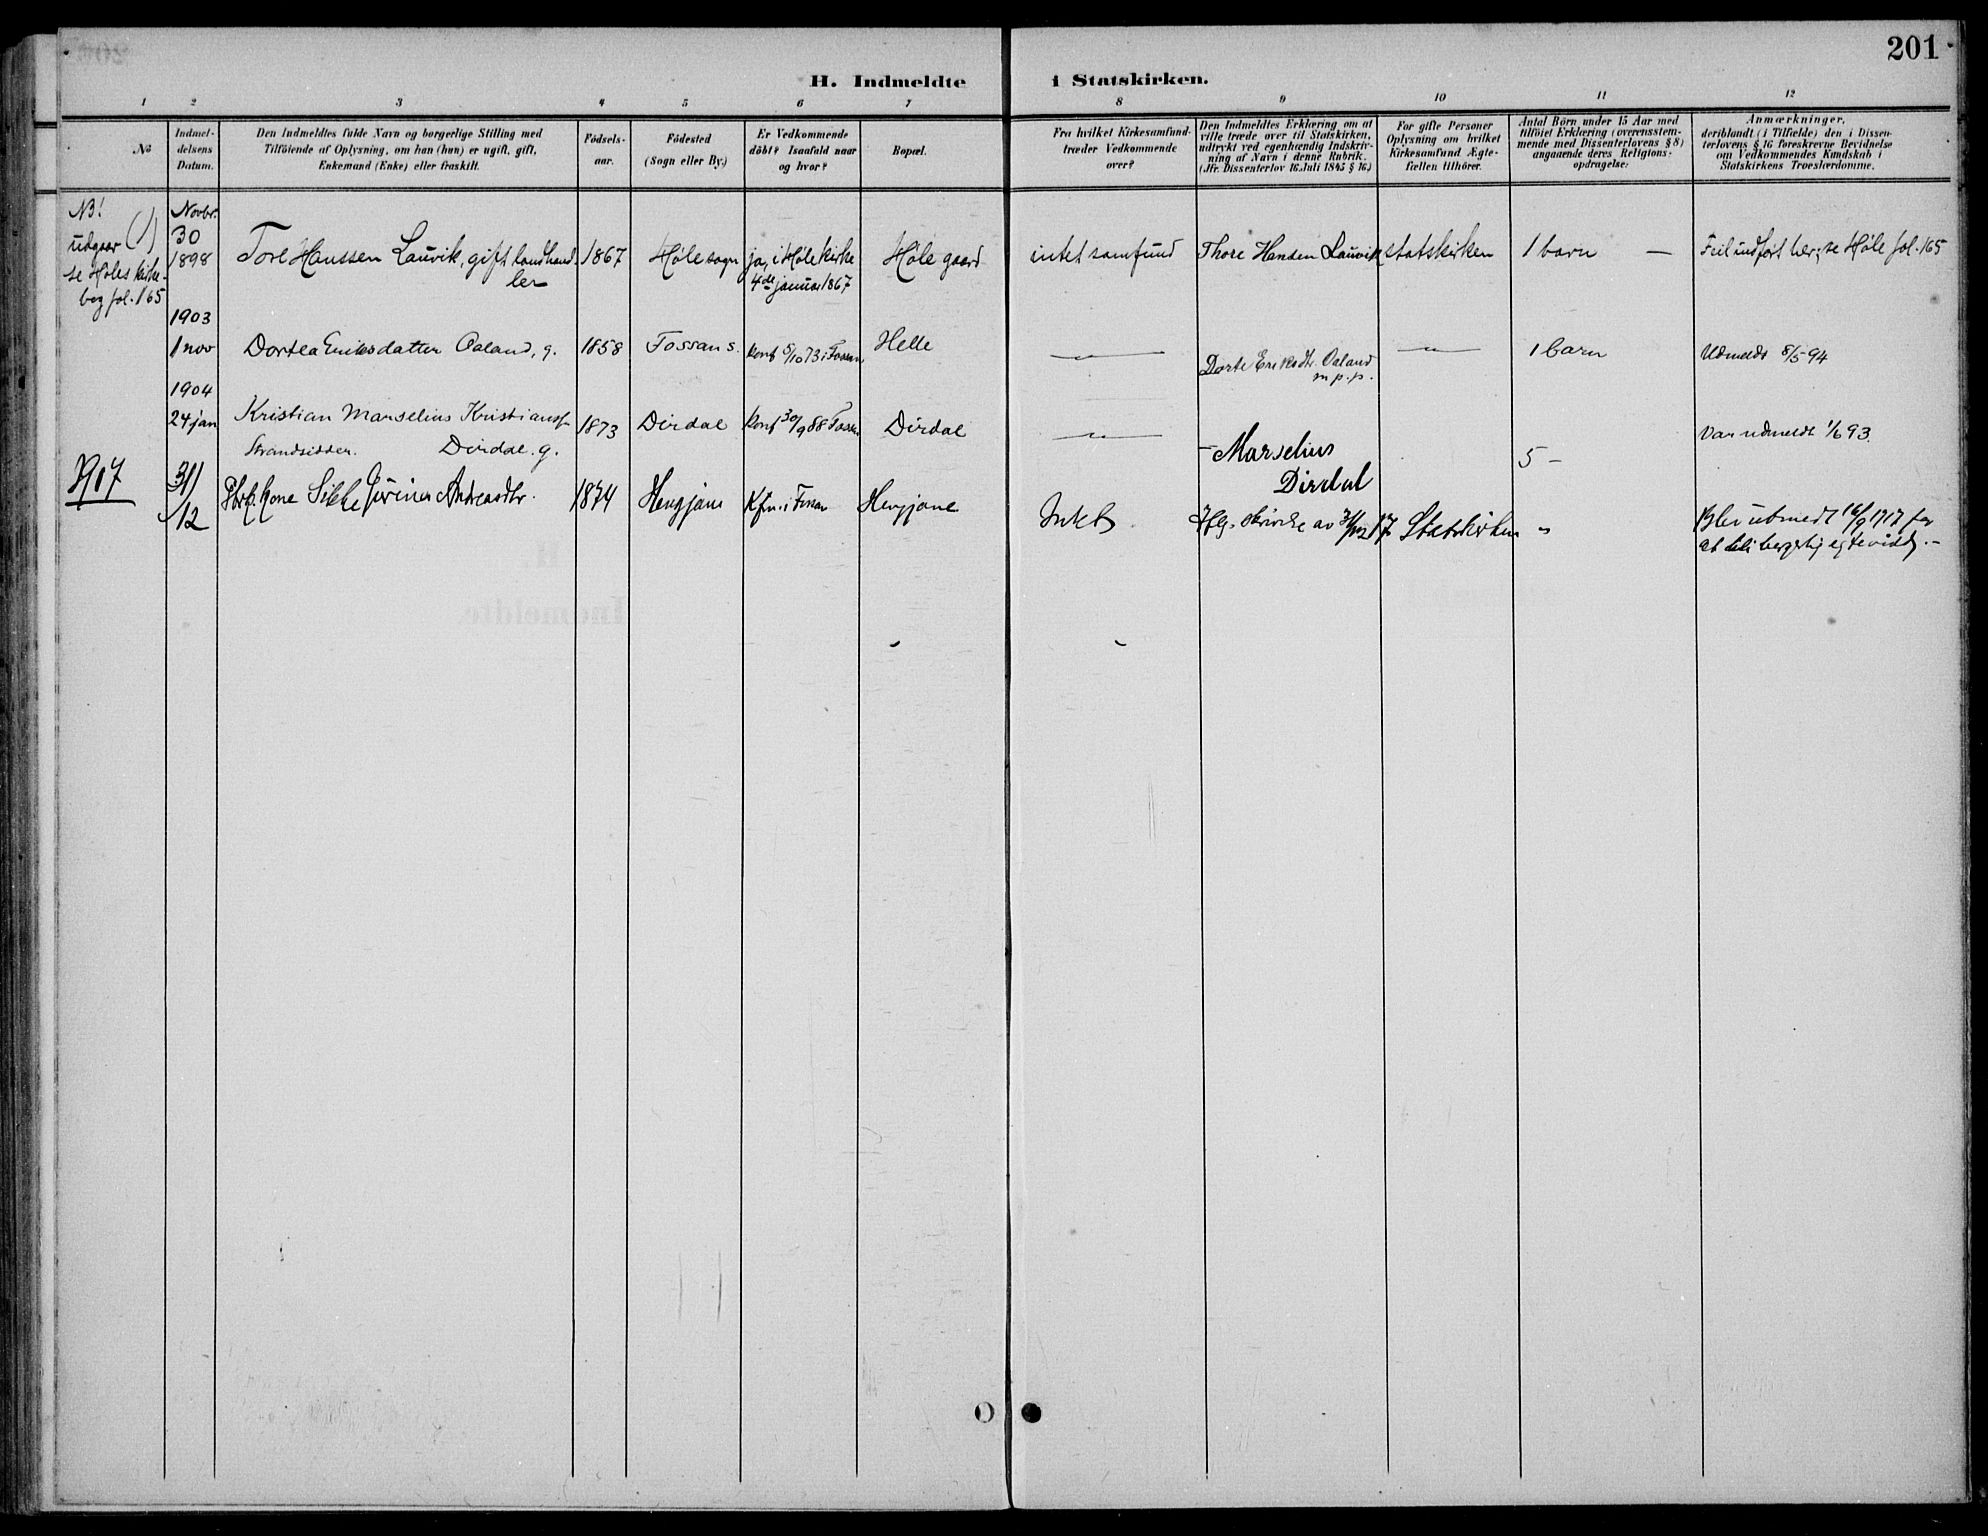 201
H. Indmeldte i Statskirken.
1 2 3 4 5 6 7 8 9 10 11 12
No
Indmel-
delsens
Datum.
Den Indmeldtes fulde Navn og borgerlige Stilling med
Tilföiende af Oplysning, om han (hun) er ugift, gift,
Enkemand (Enke) eller fraskilt.
Födsels-
aar.
Födested
(Sogn eller By.)
Er Vedkommende
döbt? Isaafald naar
og hvor?
Bopæl.
Fra hvilket Kirkesamfund
træder Vedkommende
over?
Den Indmeldtes Erklæring om at
ville træde over til Statskirken,
udtrykt ved egenhændig Indskriv-
ning af Navn i denne Rubrik.
(Jfr. Dissenterlov 16. Juli 1845 § 16.)
For gifte Personer
Oplysning om hvilket
Kirkesamfund Ægte-
fællen tilhörer.
Antal Börn under 15 Aar med
tilföiet Erklæring (overensstem-
mende med Dissenterlovens § 8)
angaaende deres Religions-
opdragelse.
Anmærkninger,
deriblandt (i Tilfælde) den i Dissen-
terlovens § 16 foreskrevne Bevidnelse
om Vedkommendes Kundskab i
Statskirkens Troeslærdomme.
NB!
udgaar (1)
se Höles kirke-
bog fol. 165
Novbr.
30
1898
Tore Hanssen Lauvik, gift landhand-
ler
1867
Höle sogn
ja, i Höle kirke
4de januar 1867
Höle gaard
intet samfund
Thore Hansen Lauvik
statskirken
1 barn —
Feil indført her; se Höle fol. 165
1903
1 nov
Dortea Eriksdatter Oaland, g.
1858
Fossan s.
konf 5/10 73 i Fossan
Helle
— " —
Dorte Eriksdtr. Oaland
m.p.p.
— " —
1 barn
Udmeldt 8/5 94
1904
24 jan
Kristian Marselius Kristianss
Strandsidder. Dirdal. g.
1873
Dirdal
konf 30/9 88 Fossan
Dirdal
— " —
Marselius
Dirdal
5 —
Var udmeldt 1/6 93.
1917
31/12
kone Sikke Andreasdtr.
1874
Hengjane
Kfm. i Fossan
Hengjane
Intet
Ifg. skrivelse av 31/12 17
Statskirken
"
Blev utmeldt 16/9 1917 for
at bli borgerlig egteviet. —